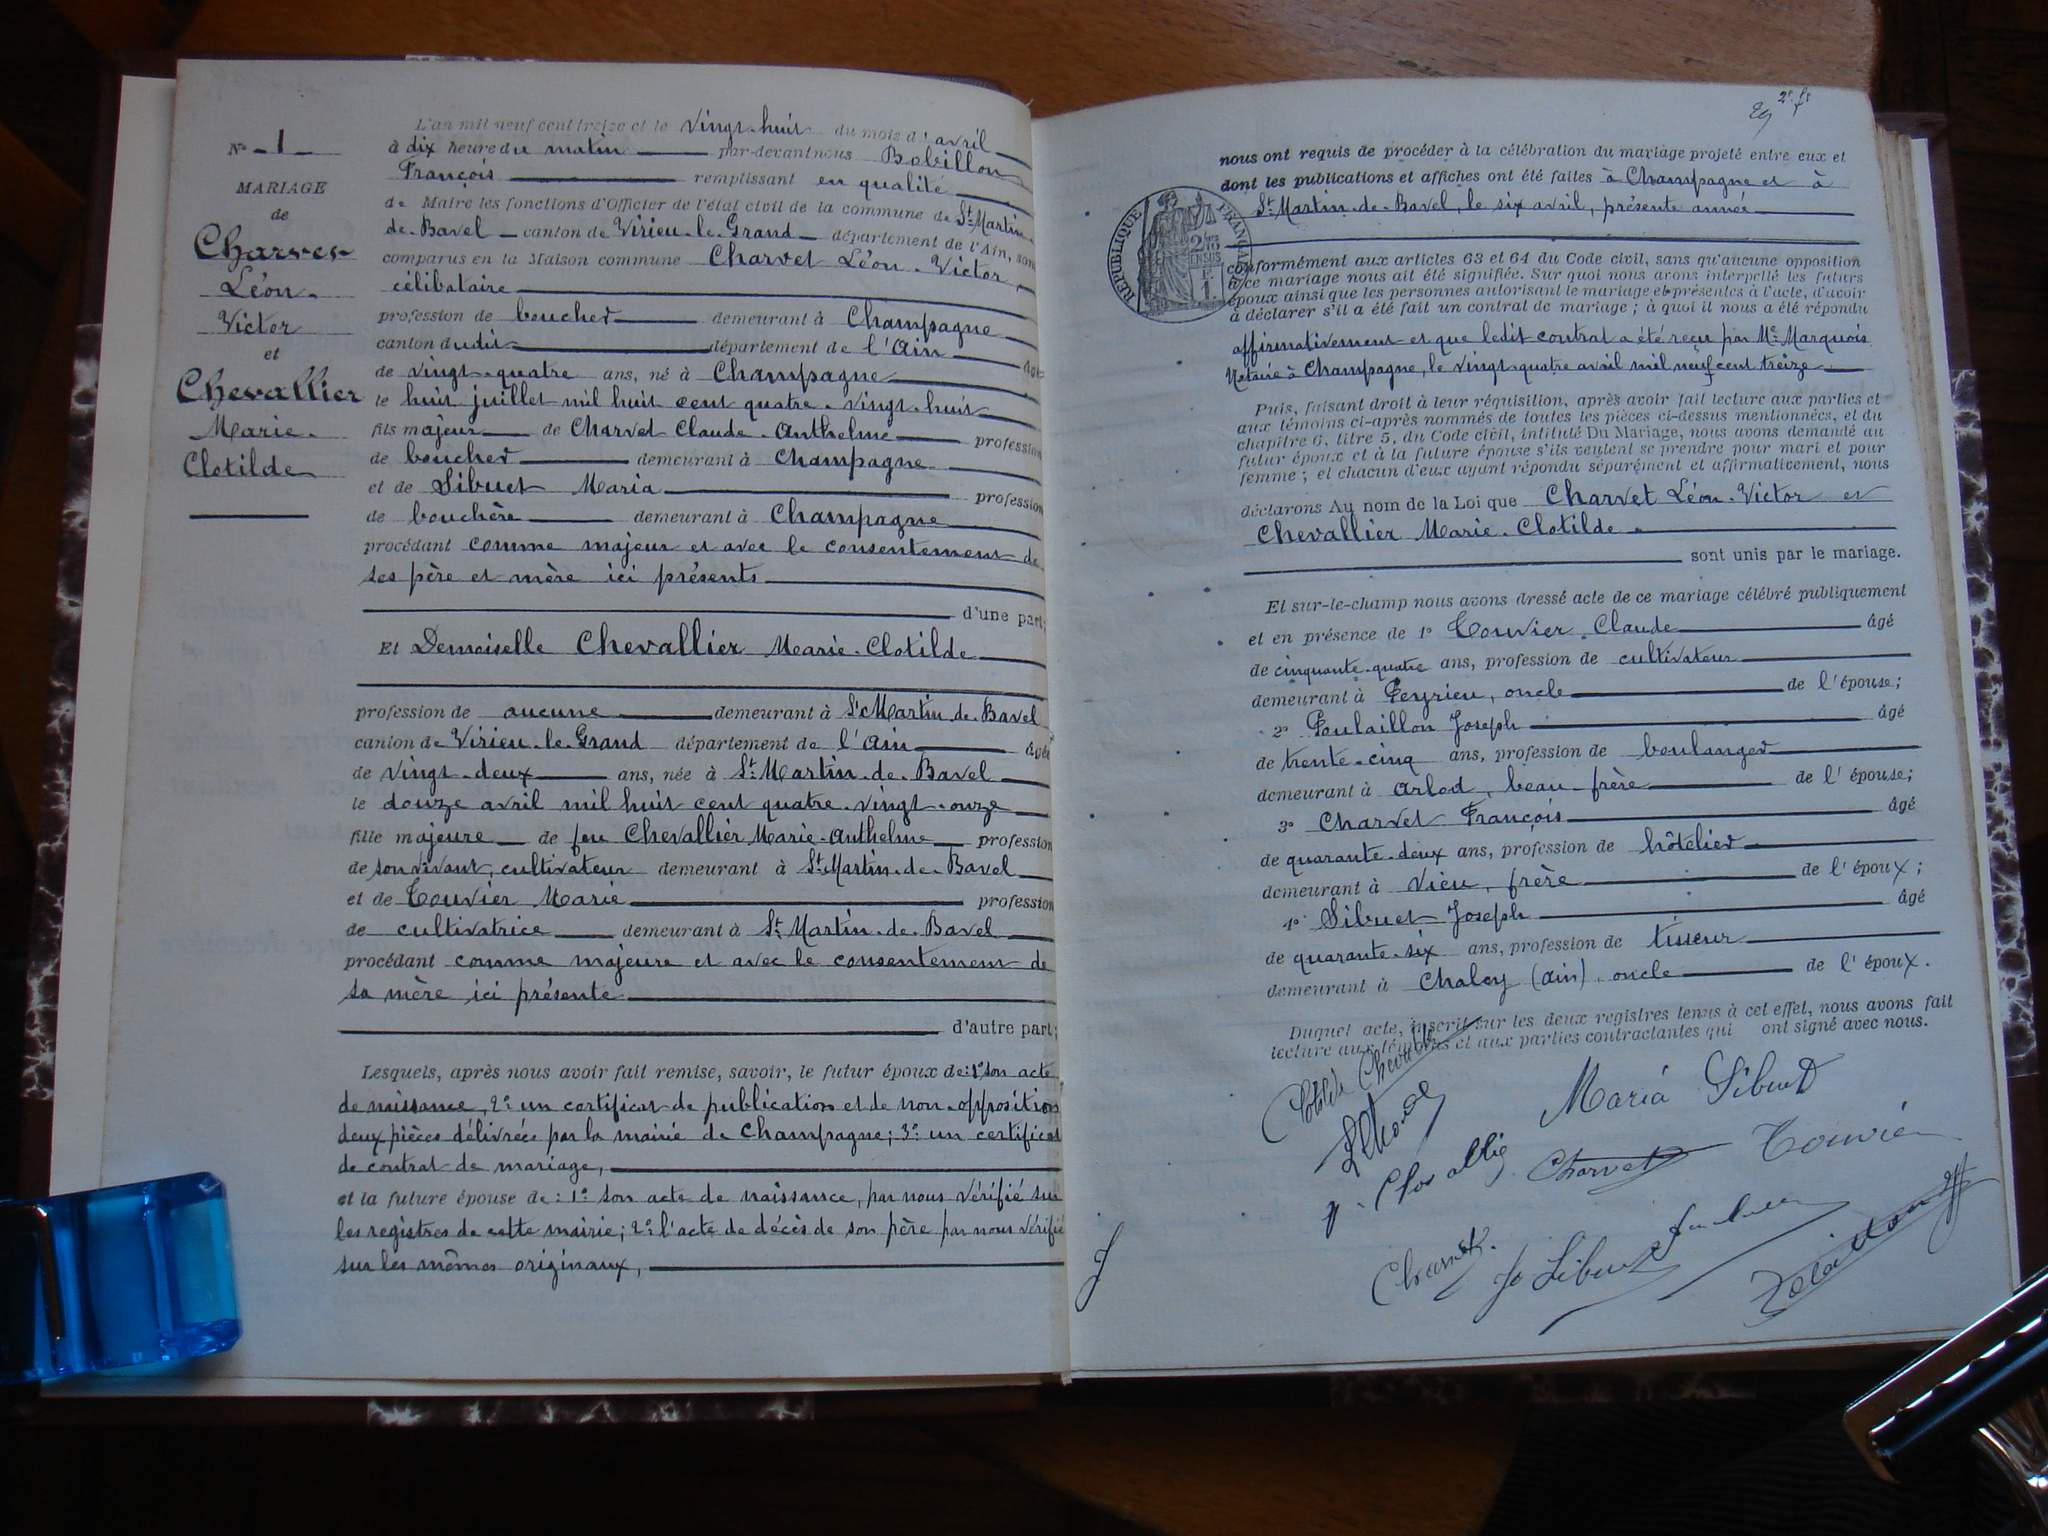 N° - 1 -
MARIAGE
de
Charvet
Léon
Victor
et
Chevallier
Marie
Clotilde
L'an mil neuf cent treize et le vingt-huit du mois d'avril
à dix heure du matin par-devant nous
François remplissant en qualité
de Maire les fonctions d'Officier de l'état civil de la commune de St Martin
de-Bavel canton de Virieu-le-Grand département de l'Ain, sont
comparus en la Maison commune Charvet Léon-Victor,
célibataire
profession de boucher demeurant à Champagne
canton dudit département de l'Ain âgé
de vingt-quatre ans, né à Champagne
le huit juillet mil huit cent quatre-vingt-huit
fils majeur de Charvet Claude-Anthelme profession
de boucher demeurant à Champagne
et de Sibuet Maria profession
de bouchère demeurant à Champagne
procédant comme majeur et avec le consentement de
ses père et mère ici présents
d'une part;
Et Demoiselle Chevallier Marie-Clotilde
profession de aucune demeurant à St Martin-de-Bavel
canton de Virieu-le-Grand département de l'Ain âgée
de vingt-deux ans, née à St Martin-de-Bavel
le douze avril mil huit cent quatre-vingt-onze
fille majeure de feu Chevallier Marie-Anthelme profession
de son vivant, cultivateur demeurant à St Martin-de-Bavel
et de Touvier Marie profession
de cultivatrice demeurant à St Martin-de-Bavel
procédant comme majeure et avec le consentement de
sa mère ici présente
d'autre part;
Lesquels, après nous avoir fait remise, savoir, le futur époux de: 1° son acte
de naissance, 2° un certificat de publication et de non-opposition
deux pièces délivrées par la mairie de Champagne; 3° un certificat
de contrat de mariage,
et la future épouse de: 1° son acte de naissance, par nous vérifié sur
les registres de cette mairie; 2° l'acte de décès de son père par nous vérifié
sur les mêmes originaux,
RÉPUBLIQUE FRANÇAISE
nous ont requis de procéder à la célébration du mariage projeté entre eux et
dont les publications et affiches ont été faites à Champagne et à
St Martin-de-Bavel, le six avril, présente année
conformément aux articles 63 et 64 du Code civil, sans qu'aucune opposition
à ce mariage nous ait été signifiée. Sur quoi nous avons interpellé les futurs
époux ainsi que les personnes autorisant le mariage et présentes à l'acte, d'avoir
à déclarer s'il a été fait un contrat de mariage; à quoi il nous a été répondu
affirmativement et que ledit contrat a été reçu par Me Marquois
Notaire à Champagne, le vingt-quatre avril mil neuf cent treize
Puis, faisant droit à leur réquisition, après avoir fait lecture aux parties et
aux témoins ci-après nommés de toutes les pièces ci-dessus mentionnées, et du
chapitre 6, titre 5, du Code civil, intitulé Du Mariage, nous avons demandé au
futur époux et à la future épouse s'ils veulent se prendre pour mari et pour
femme; et chacun d'eux ayant répondu séparément et affirmativement, nous
déclarons Au nom de la Loi que Charvet Léon-Victor et
Chevallier Marie-Clotilde
sont unis par le mariage.
Et sur-le-champ nous avons dressé acte de ce mariage célébré publiquement
et en présence de 1° Touvier Claude âgé
de cinquante-quatre ans, profession de cultivateur
demeurant à Peyrieu, oncle de l'épouse;
2° Poulaillon Joseph âgé
de trente-cinq ans, profession de boulanger
demeurant à Arlod, beau-frère de l'épouse;
3° Charvet François âgé
de quarante-deux ans, profession de hôtelier
demeurant à Vieu, frère de l'époux;
4° Sibuet Joseph âgé
de quarante-six ans, profession de tisseur
demeurant à Chaley (Ain), oncle de l'époux.
Duquel acte, inscrit sur les deux registres tenus à cet effet, nous avons fait
lecture aux témoins et aux parties contractantes qui ont signé avec nous.
Clotilde Chevallier
Maria Sibuet
Charvet Touvier
Charvet Jh Sibuet